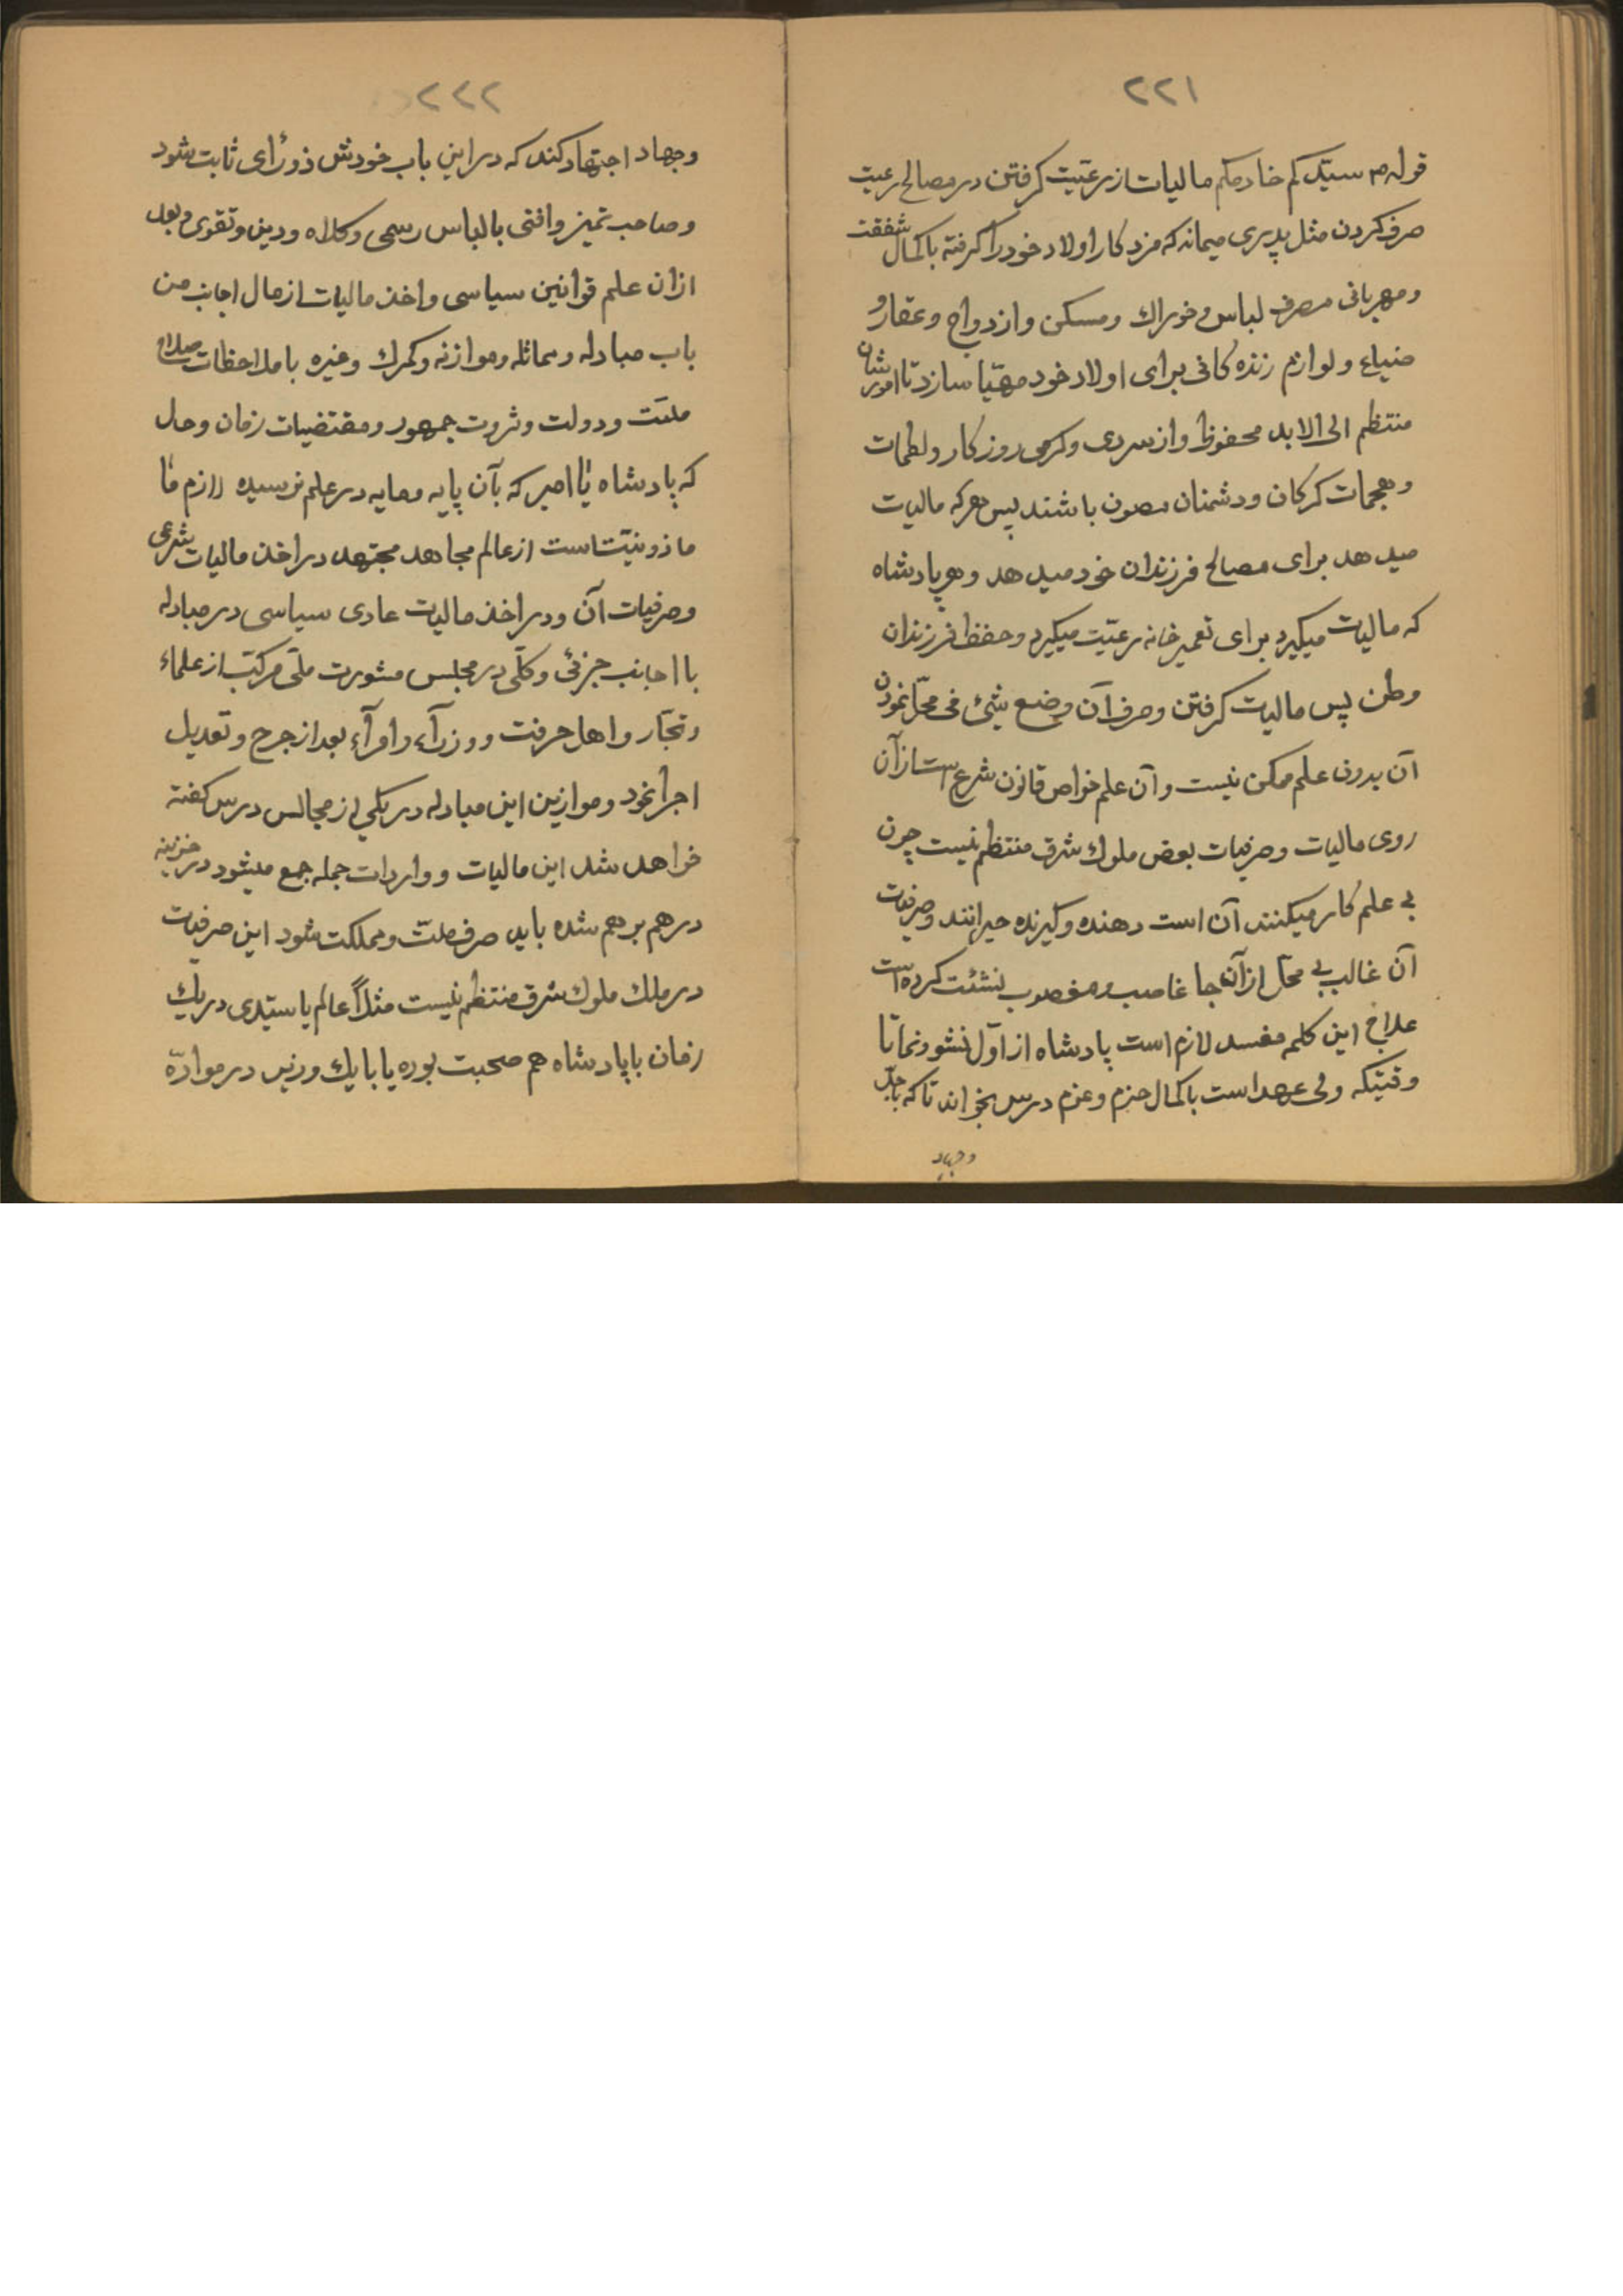 ٢٢١
قوله ص سیدکم خادمکم مالیات از رعیّت کرفتن در مصالح رعیت
صرف کردن مثل پدری میماند که مزد کار اولاد خود را کرفته باکمال شفقت
ومهربانی مصرف لباس و خوراك ومسکن وازدواج وعقار و
ضیاع ولوازم زنده کانی برای اولاد خود مهیّا سازد تا امورشان
منتظم الی الابد محفوظ واز سردی وکرمی روزکار ولطمات
وهجمات کرکان ودشمنان مصون باشند پس هرکه مالیات
میدهد برای مصالح فرزندان خود میدهد وهر پادشاه
که مالیات میکیرد برای تعمیر خانه رعیّت میکیرد وحفظ فرزندان
وطن پس مالیات کرفتن وصرف آن وضع شیئ فی محلّ نمودن
آن بدون علم ممکن نیست وآن علم خواص قانون شرع است از آن
روی مالیات وصرفیات بعض ملوك شرق منتظم نیست چون
بی علم کار میکنند آن است دهنده وکیرنده حیرانند وصرفیات
آن غالب بی محلّ از آنجا غاصب ومغصوب نشئت کرده است
علاج این کلمه مفسد لازم است پادشاه از اوّل نشو ونما تا
وقتیکه ولی عهد است باکمال حزم وعزم درس بخواند تا که باجدّ
وجهاد
٢٢٢
وجهاد اجتهاد کند که در این باب خودش ذو رأی ثابت شود
وصاحب تمیز وافتی با لباس رسمی وکلاه ودین وتقوی وبعد
ازان علم قوانین سیاسی واخذ مالیات از مال اجانب من
باب مبادله ومماثله وموازنه وکمرك وغیره با ملاحظات صلاح
ملّت ودولت وثروت جمهور ومقتضیات زمان وحال
که پادشاه یا امیر که بآن پایه ومایه در علم نرسیده لازم
ماذونیّت است از عالم مجاهد مجتهد در اخذ مالیات شرعی
وصرفیات آن ودر اخذ مالیات عادی سیاسی در مبادله
با اجانب جزئی وکلّی در مجلس مشورت ملّی مرکّب از علماء
وتجّار واهل حرفت ووزرآء وامرآء بعد از جرح وتعدیل
اجرا نمود وموازین این مبادله در یکی از مجالس درس کفته
خواهد شد این مالیات وواردات جمله جمع میشود در خزینه
درهم برهم شده باید صرف ملّت ومملکت شود این صرفیات
در ملك ملوك شرق منتظم نیست مثلاً عالم یا سیّدی در یك
زمان با پادشاه هم صحبت بوده یا با یك وزیر در موادّه